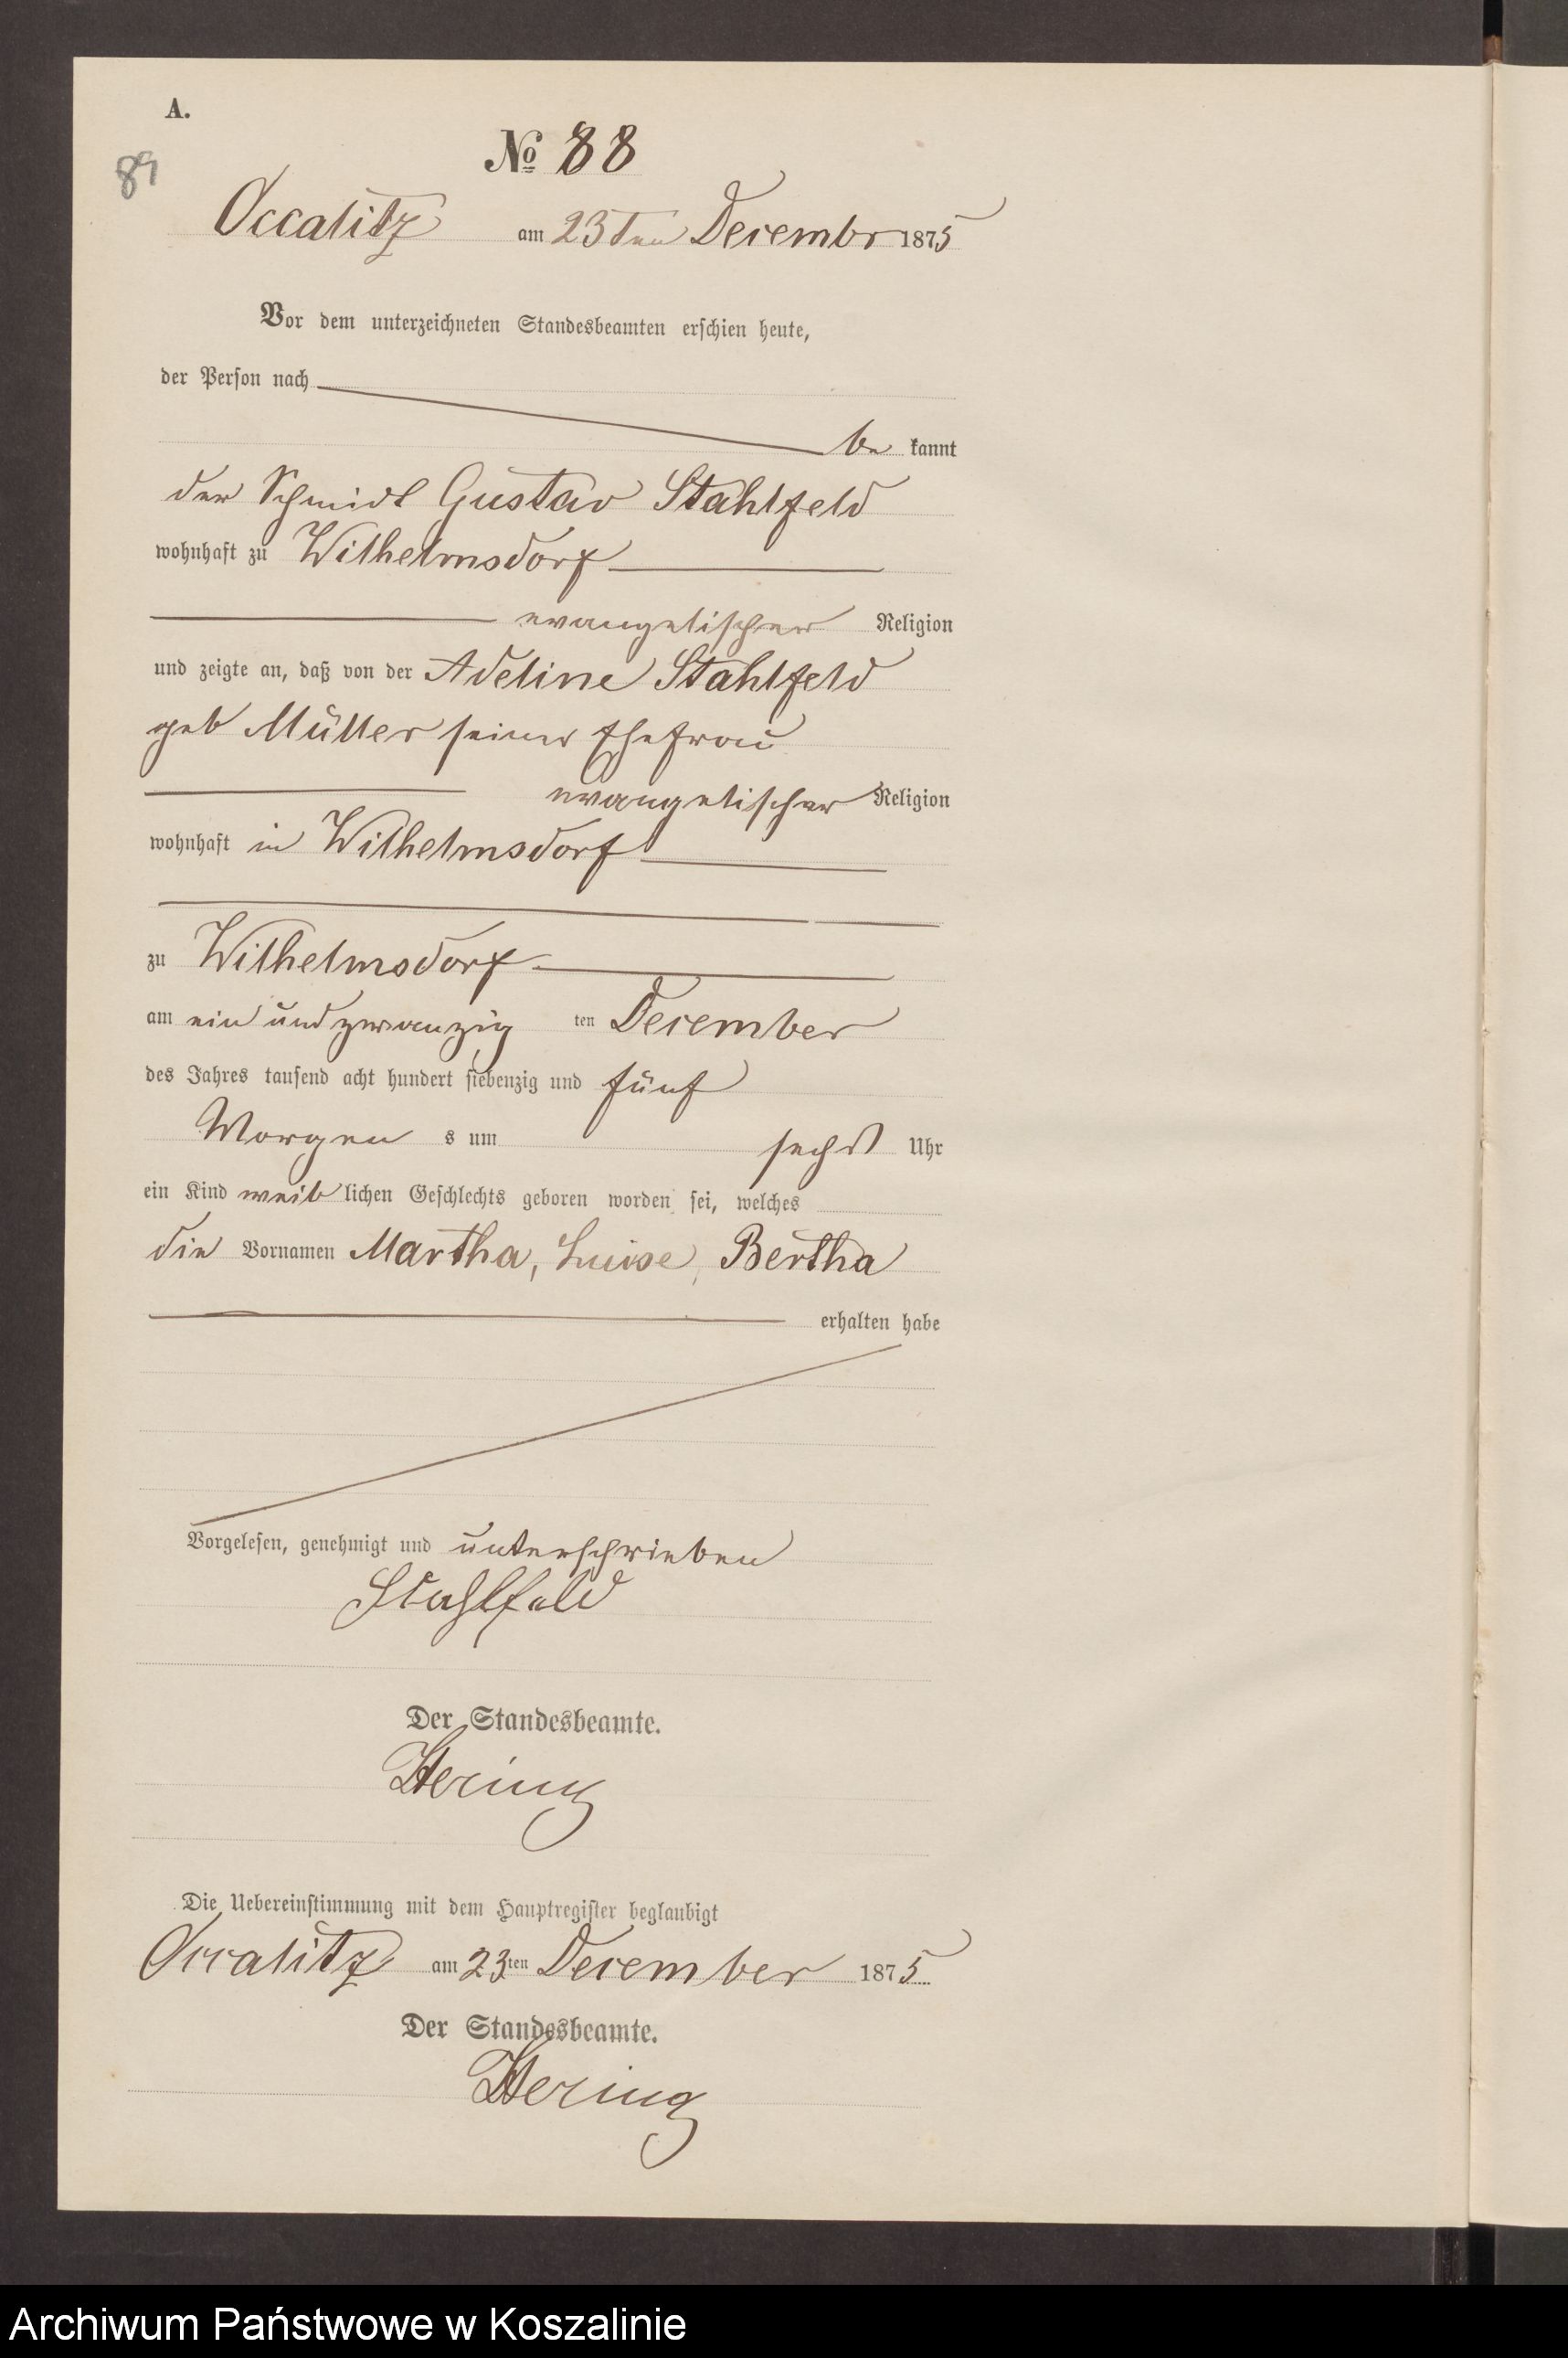 A.
89
No 88
Occalitz am 23ten Decembr 1875
Vor dem unterzeichneten Standesbeamten erschien heute,
der Person nach
be kannt
der Schmidt Gustav Stahlfeld
wohnhaft zu Wilhelmsdorf
evangelischer Religion
und zeigte an, daß von der Adeline Stahlfeld
geb Müller seiner Ehefrau
evangelischer Religion
wohnhaft in Wilhelmsdorf
zu Wilhelmsdorf
am ein und zwanzig ten December
des Jahres tausend acht hundert siebenzig und fünf
Morgen s um sechs Uhr
ein Kind weib lichen Geschlechts geboren worden sei, welches
die Vornamen Martha, Luise, Bertha
erhalten habe
Vorgelesen, genehmigt und unterschrieben
Stahlfeld
Der Standesbeamte.
Hering
Die Uebereinstimmung mit dem Hauptregister beglaubigt
Occalitz am 23ten December 1875
Der Standesbeamte.
Hering
Archiwum Państwowe w Koszalinie